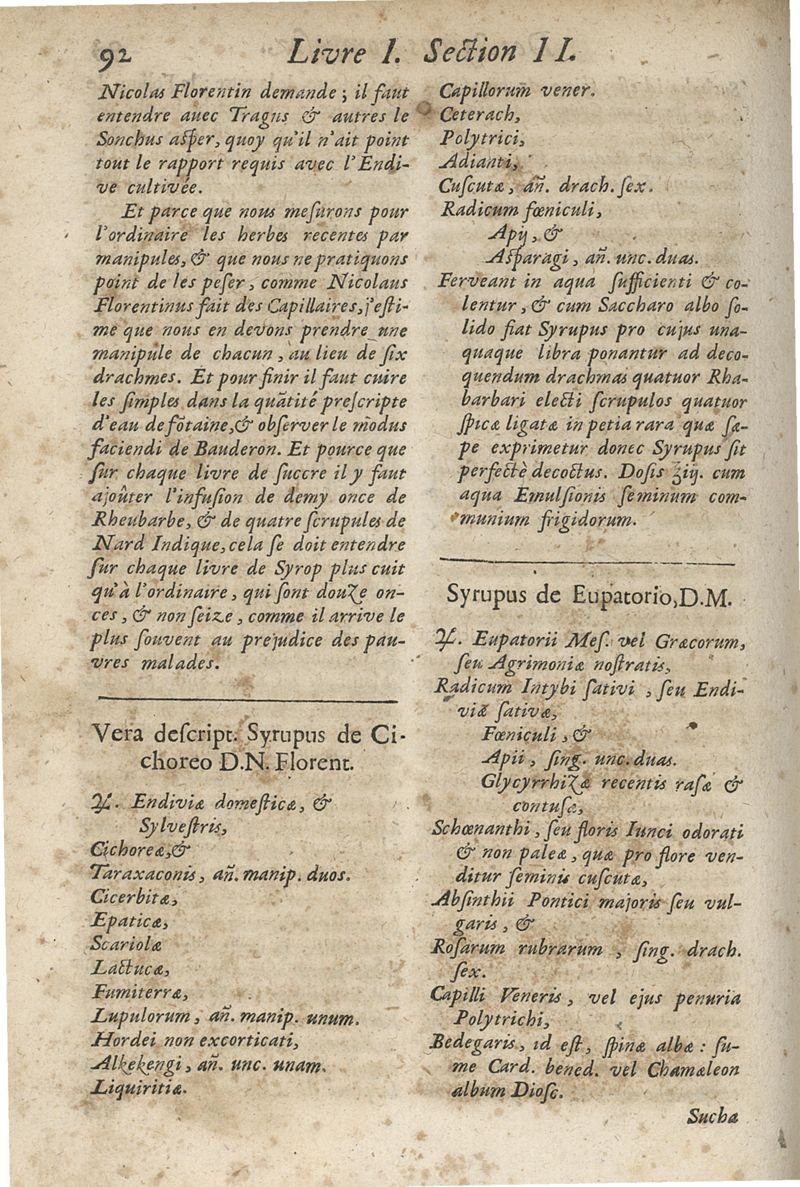 92
Livre I. Section II.
Nicolas Florentin demande ; il faut
entendre auec Tragus & autres le
Sonchus asper, quoy qu'il n'ait point
tout le rapport requis avec l'Endi-
ve cultivée.
Et parce que nous mesurons pour
l'ordinaire les herbes recentes par
manipules, & que nous ne pratiquons
point de les peser, comme Nicolaus
Florentinus fait des Capillaires, j'esti-
me que nous en devons prendre une
manipule de chacun, au lieu de six
drachmes. Et pour finir il faut cuire
les simples dans la quãtité prescripte
d'eau de fõtaine, & observer le modus
faciendi de Bauderon. Et pource que
sur chaque livre de succre il y faut
ajoûter l'infusion de demy once de
Rheubarbe, & de quatre scrupules de
Nard Indique, cela se doit entendre
sur chaque livre de Syrop plus cuit
qu'à l'ordinaire, qui sont douze on-
ces, & non seize, comme il arrive le
plus souvent au prejudice des pau-
vres malades.
Vera descript. Syrupus de Ci-
choreo D.N. Florent.
♃. Endiviæ domesticæ, &
Sylvestris,
Cichoreæ, &
Taraxaconis, añ. manip. duos.
Cicerbitæ,
Epaticæ,
Scariolæ
Lactucæ,
Fumiterræ,
Lupulorum, añ. manip. unum.
Hordei non excorticati,
Alkekengi, añ. unc. unam.
Liquiritiæ.
Capillorum vener.
Ceterach,
Polytrici,
Adianti,
Cuscutæ, añ. drach. sex.
Radicum fœniculi,
Apij, &
Asparagi, añ. unc. duas.
Ferveant in aqua sufficienti & co-
lentur, & cum Saccharo albo so-
lido fiat Syrupus pro cujus una-
quaque libra ponantur ad deco-
quendum drachmas quatuor Rha-
barbari electi scrupulos quatuor
spicæ ligatæ in petia rara quæ sæ-
pe exprimetur donec Syrupus sit
perfectè decoctus. Dosis ℥iij. cum
aqua Emulsionis seminum com-
munium frigidorum.
Syrupus de Eupatorio, D.M.
♃. Eupatorii Mes. vel Græcorum,
seu Agrimoniæ nostratis,
Radicum Intybi sativi, seu Endi-
viæ sativæ,
Fœniculi, &
Apii, sing. unc. duas.
Glycyrrhizæ recentis rasæ &
contusæ,
Schœnanthi, seu floris Iunci odorati
& non paleæ, quæ pro flore ven-
ditur seminis cuscutæ,
Absinthii Pontici majoris seu vul-
garis, &
Rosarum rubrarum, sing. drach.
sex.
Capilli Veneris, vel ejus penuria
Polytrichi,
Bedegaris, id est, spinæ albæ : su-
me Card. bened. vel Chamæleon
album Diosc.
Sucha